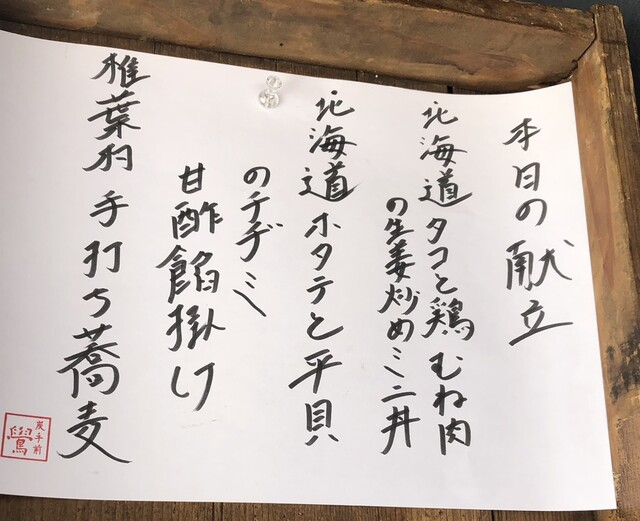 本日の献立
北海道タコと鶏むね肉
の生姜炒めミニ丼
北海道ホタテと平貝
のチヂミ
甘酢餡掛け
椎葉村手打ち蕎麦
炭手前
鷽